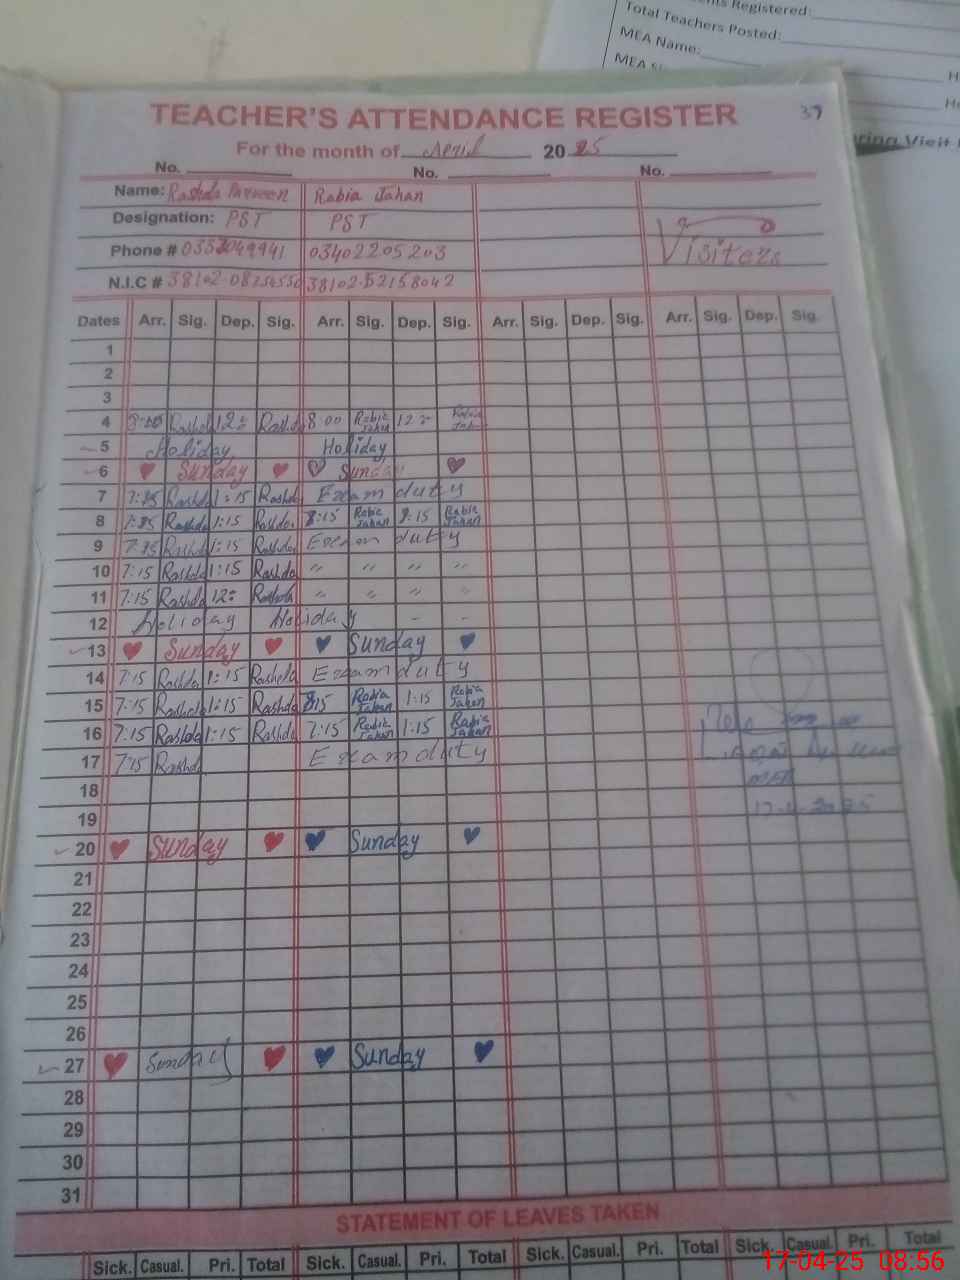 nts Registered:
Total Teachers Posted:
MEA Name:
TEACHER'S ATTENDANCE REGISTER 39
For the month of April 2025
No. No. No.
Name: Rashda Parveen Rabia Jahan
Designation: PST PST
Visiters
Phone # 03402205203
N.I.C # 38102-52158042
Dates Arr. Sig. Dep. Sig. Arr. Sig. Dep. Sig. Arr. Sig. Dep. Sig. Arr. Sig. Dep. Sig.
1
2
3
4 Rashda Rashda 8:00 Rabia Jahan Rabia Jahan
5 Holiday Holiday
6 Sunday Sunday
7 Rashda 1:15 Rashda Exam duty
8 Rashda 1:15 Rashda 8:15 Rabia Jahan Rabia Jahan
9 Rashda 1:15 Rashda Exam duty
10 7:15 Rashda 1:15 Rashda " " " "
11 7:15 Rashda Rashda " " " "
12 Holiday Holiday - -
13 Sunday Sunday
14 7:15 Rashda 1:15 Rashda Exam duty
15 7:15 Rashda 1:15 Rashda Rabia Jahan 1:15 Rabia Jahan
16 7:15 Rashda 1:15 Rashda 7:15 Rabia Jahan 1:15 Rabia Jahan
17 7:15 Rashda Exam duty
MEA
18
17-4-2025
19
20 Sunday Sunday
21
22
23
24
25
26
27 Sunday Sunday
28
29
30
31
STATEMENT OF LEAVES TAKEN
Sick. Casual. Pri. Total Sick. Casual. Pri. Total Sick. Casual. Pri. Total Sick. Casual. Pri. Total
17-04-25 08:56